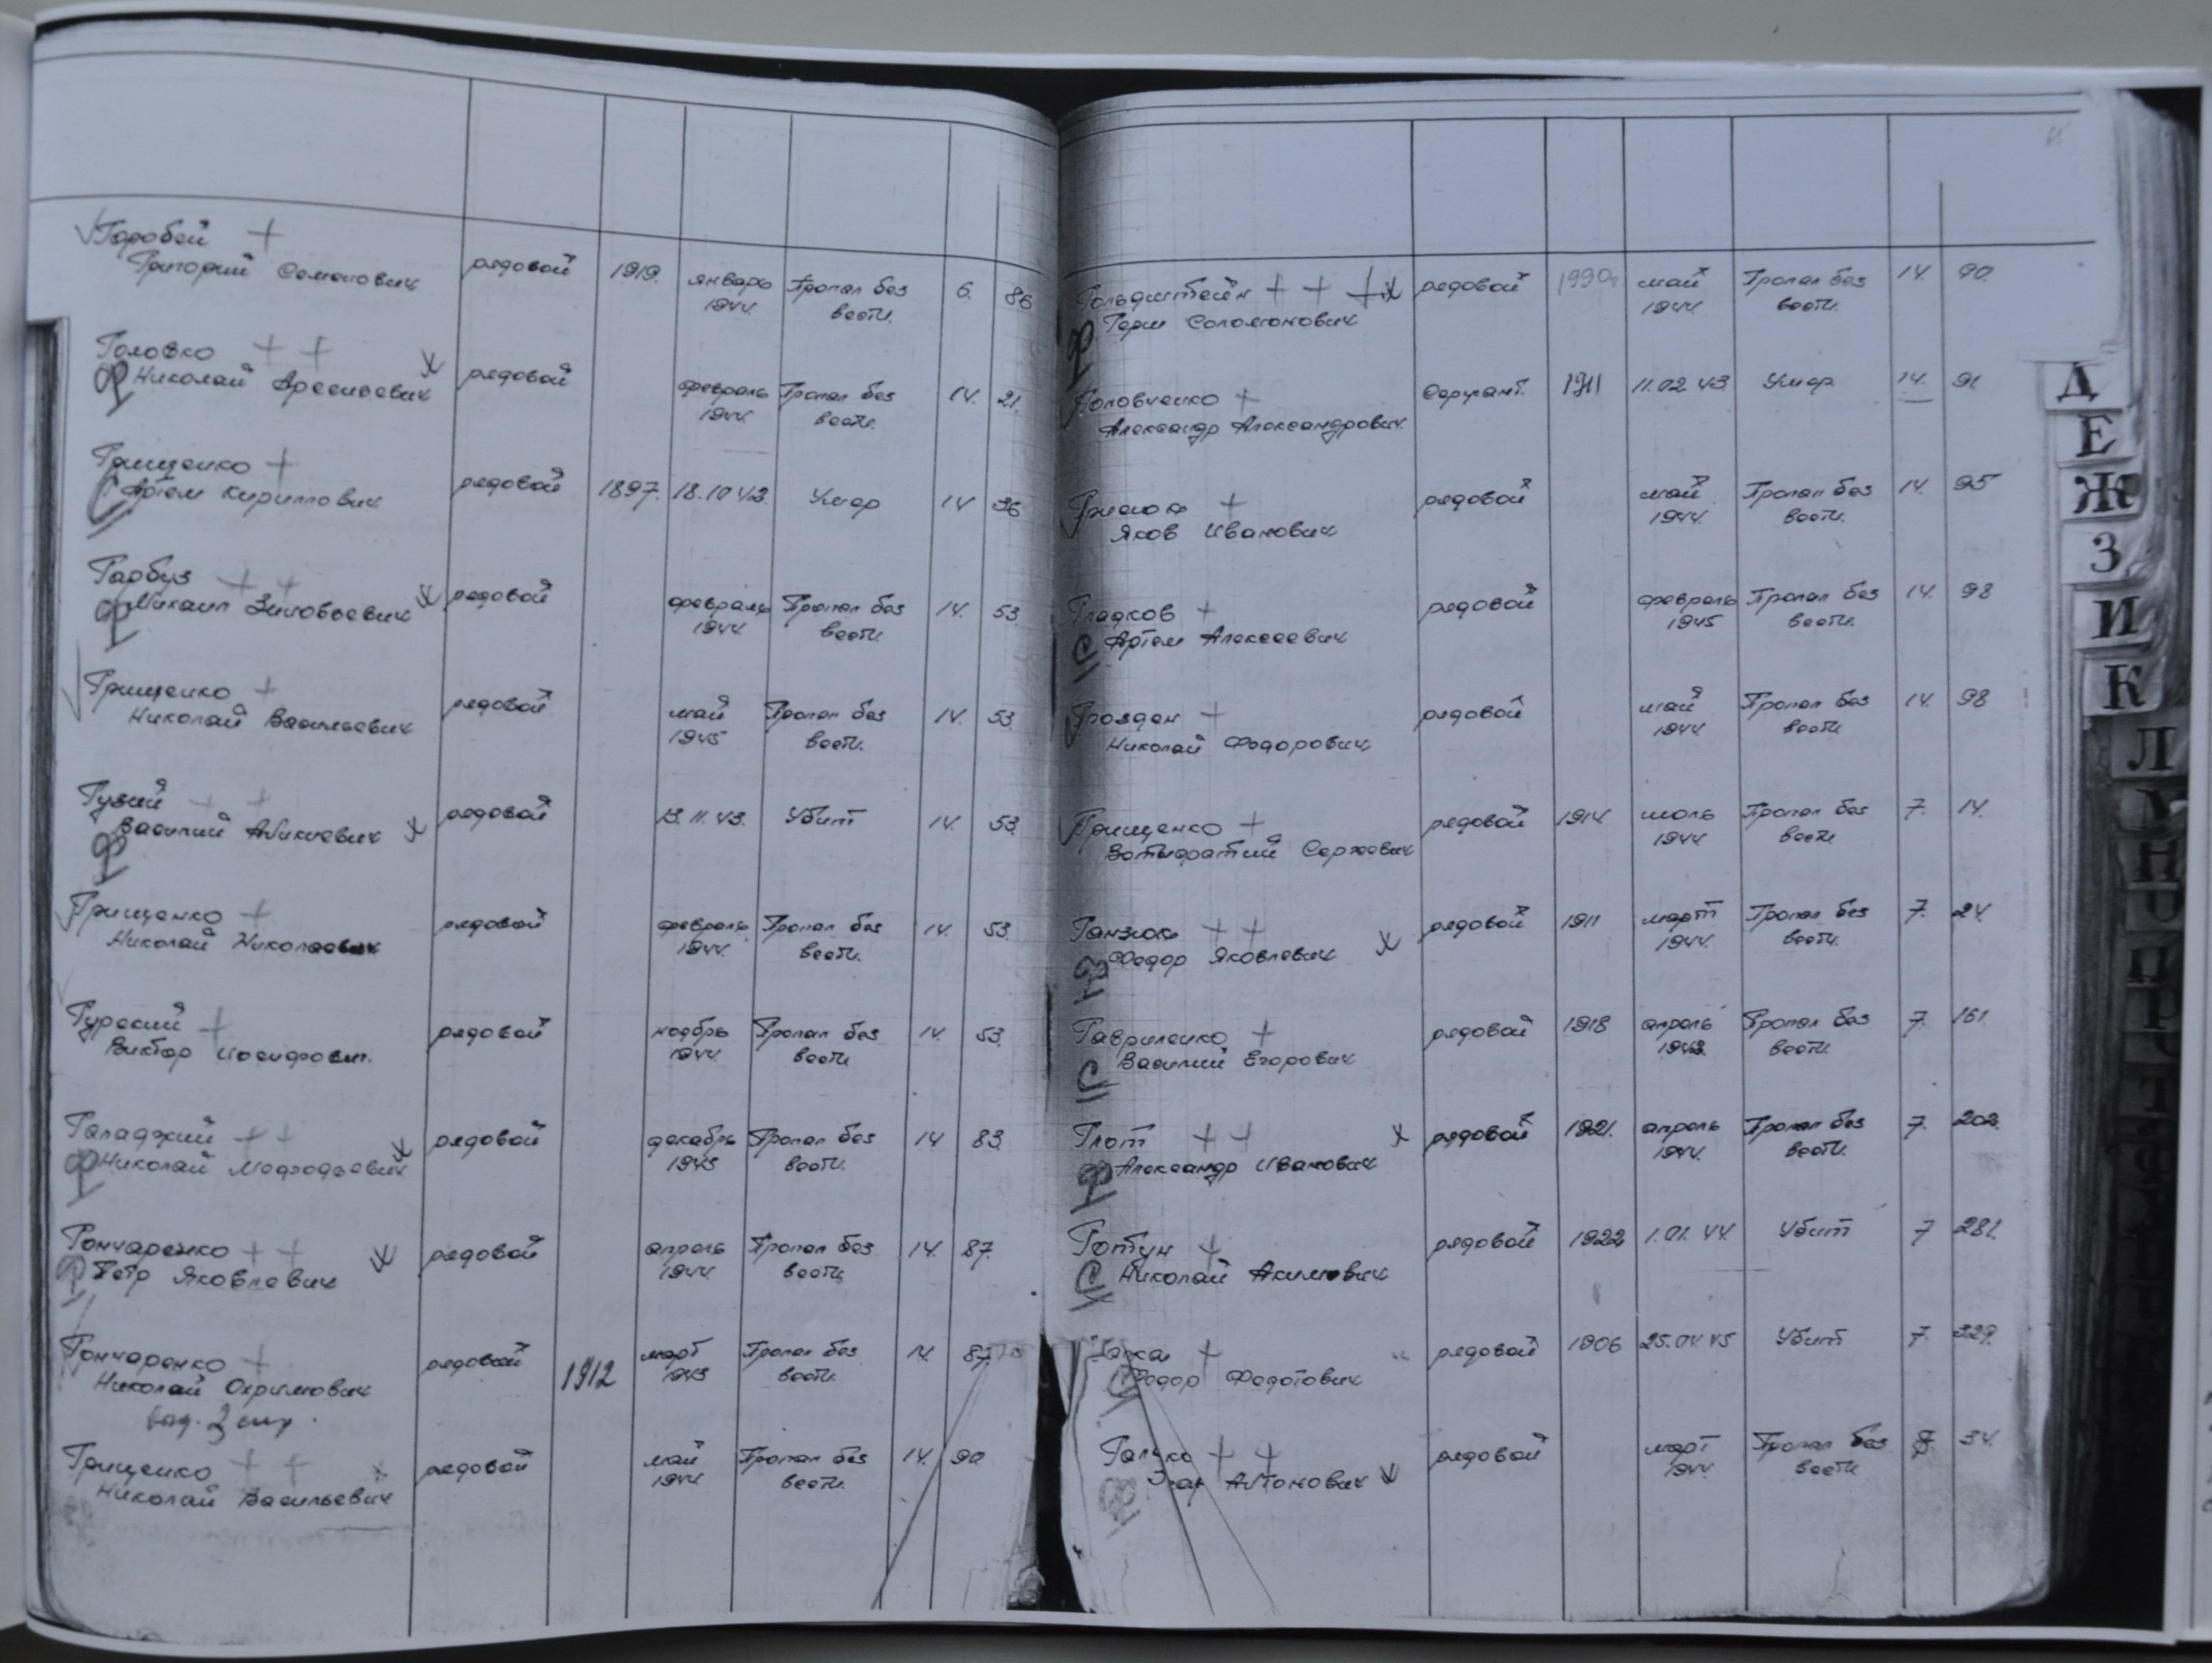 Горобей +
Григорий Семенович рядовой 1919. январь 1944. Пропал без вести. 6. 86
Головко + +
Ф Николай Арсеньевич х рядовой февраль 1944. Пропал без вести. 14. 21.
Грищенко +
С Артем Кириллович рядовой 1897. 18.10 43. Умер 14 36
Гарбуз + +
Ф Михаил Зиновьевич х рядовой февраль 1944 Пропал без вести 14. 53
Грищенко +
Николай Васильевич рядовой май 1945 Пропал без вести. 14. 53
Гузий + +
Ф Василий х рядовой 13.11.43. Убит 14. 53.
Грищенко +
Николай Николаевич рядовой февраль 1944. Пропал без вести. 14. 53.
+
Виктор Иосифович. рядовой ноябрь 1944. Пропал без вести 14. 53.
Галаджий + +
Ф Николай х рядовой декабрь 1943 Пропал без вести. 14 83
Гончаренко + + х
Ф Петр Яковлевич рядовой апрель 1944. Пропал без вести 14. 87.
Гончаренко +
Николай Охримович рядовой 1912 март 1943 Пропал без вести. 14. 87
Грищенко + + х
Николай Васильевич рядовой май 1944 Пропал без вести. 14. 90
Гольдштейн + + + х рядовой май 1944 Пропал без вести. 14. 90.
Ф Соломонович
Головченко + Сержант. 1911 11.02 43 Умер 14. 91
Александр Александрович
+ рядовой май 1944. Пропал без вести. 14. 95
Яков Иванович
Гладков + рядовой февраль 1945 Пропал без вести. 14. 98
С Артем Алексеевич
Грозден + рядовой май 1944 Пропал без вести 14. 98
Николай Федорович
Грищенко + рядовой 1914 июль 1944 Пропал без вести 7. 14.
Сергеевич
Ганзюк + + рядовой 1911 март 1944. Пропал без вести. 7. 24.
Ф Федор Яковлевич х
Гавриленко + рядовой 1918 апрель 1943. Пропал без вести. 7. 161.
С Василий Егорович
Глот + + х рядовой 1921. апрель 1944. Пропал без вести. 7. 202.
Ф Александр Иванович
Готун + рядовой 1922 1.01.44. Убит 7 281.
С Николай Акимович
+ рядовой 1906 25.04.45 Убит 7. 329.
Федор Федотович
Галько + + рядовой март 1944. Пропал без вести 8. 34.
Ф х
Д
Е
Ж
З
И
К
Л